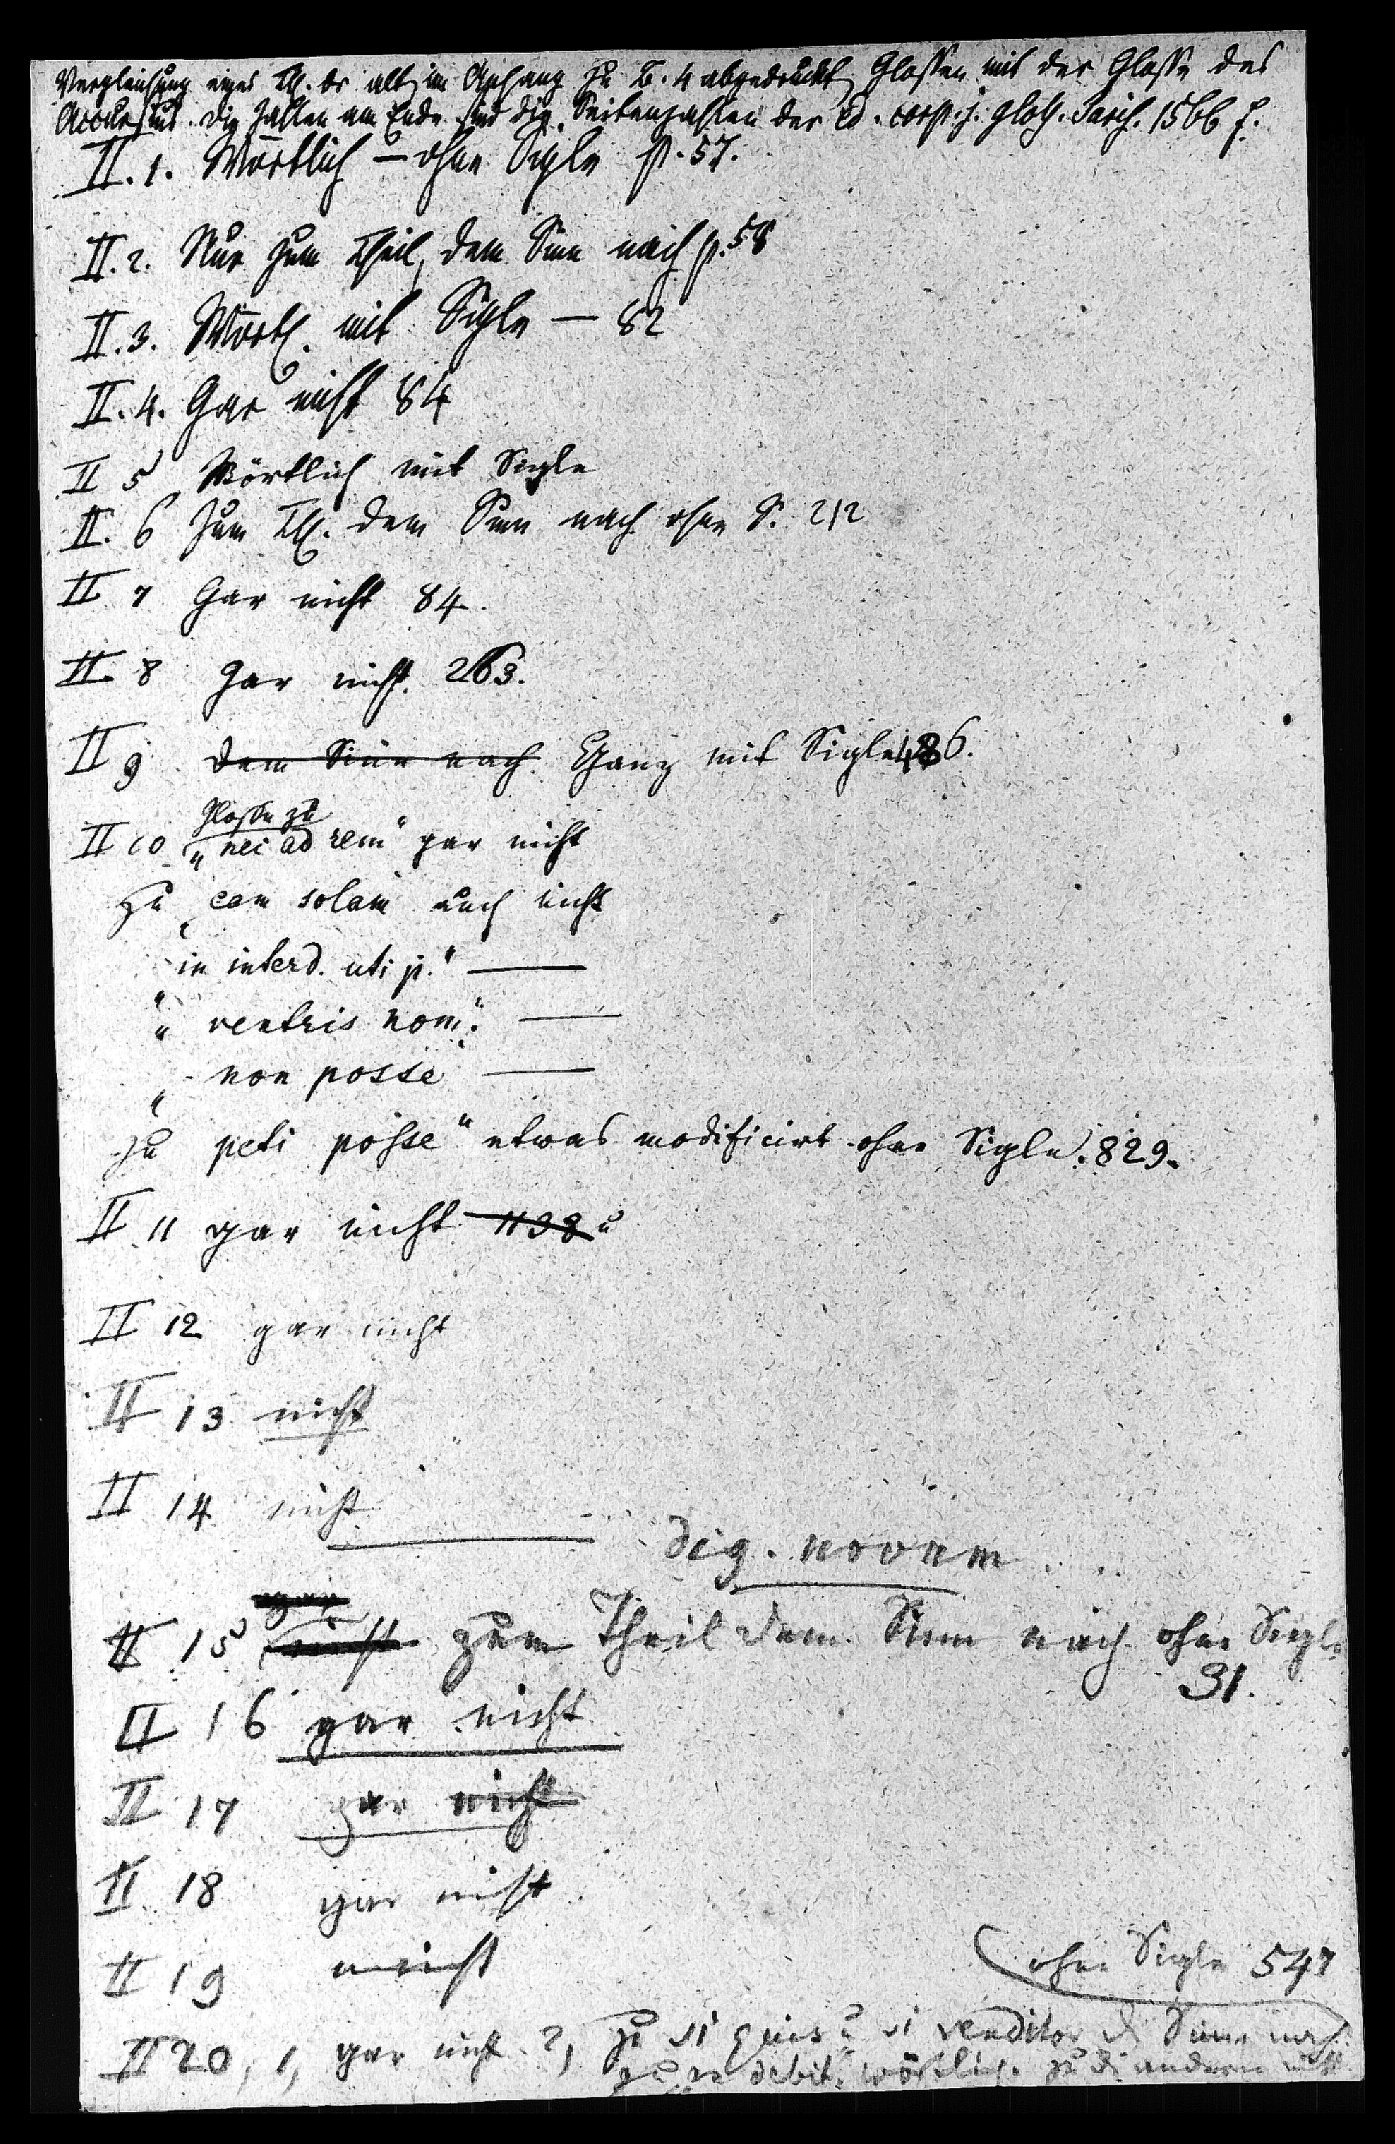 Vergleichung eines Th. der alt im Anhang zu B. 4 abgedruckt Glossen mit der Glosse des
Accursius. Die Zahlen am Ende sind die Seitenzahlen der Ed. corp. j. glo. Paris. 1566 f.
II. 1. Wörtlich – ohne Sigle p. 57.
II. 2. Nur zum Theil, dem Sinn nach p. 58
II. 3. Wörtl. mit Sigle — 82
II. 4. Gar nicht 84
II 5 Wörtlich mit Sigle
II. 6 Zum Th. dem Sinn nach ohne S. 212
II 7 Gar nicht 84.
II 8 Gar nicht. 263.
II 9 dem Sinn nach. Ganz mit Sigle 486.
Glosse zu
II 10 „nec ad rem“ gar nicht
zu „eam solam auch nicht
„in interd. uti p.“ —
„ ventris nom.“ —
„ non posse —
zu peti posse“ etwas modificirt ohne Sigle. 829.
II 11 gar nicht 1138
II 12 gar nicht
II 13 nicht
II 14 nicht
Dig. novum
gar
II 15 nicht zum Theil dem Sinn nach ohne Sigle
31.
II 16 gar nicht
II 17 gar nicht
II 18 gar nicht
II 19 nicht
ohne Sigle 547
II 20, 1, gar nicht 2, zu si quis u si venditor d. Sinne nach.
zu debit. wörtlich. zu d. andern nicht